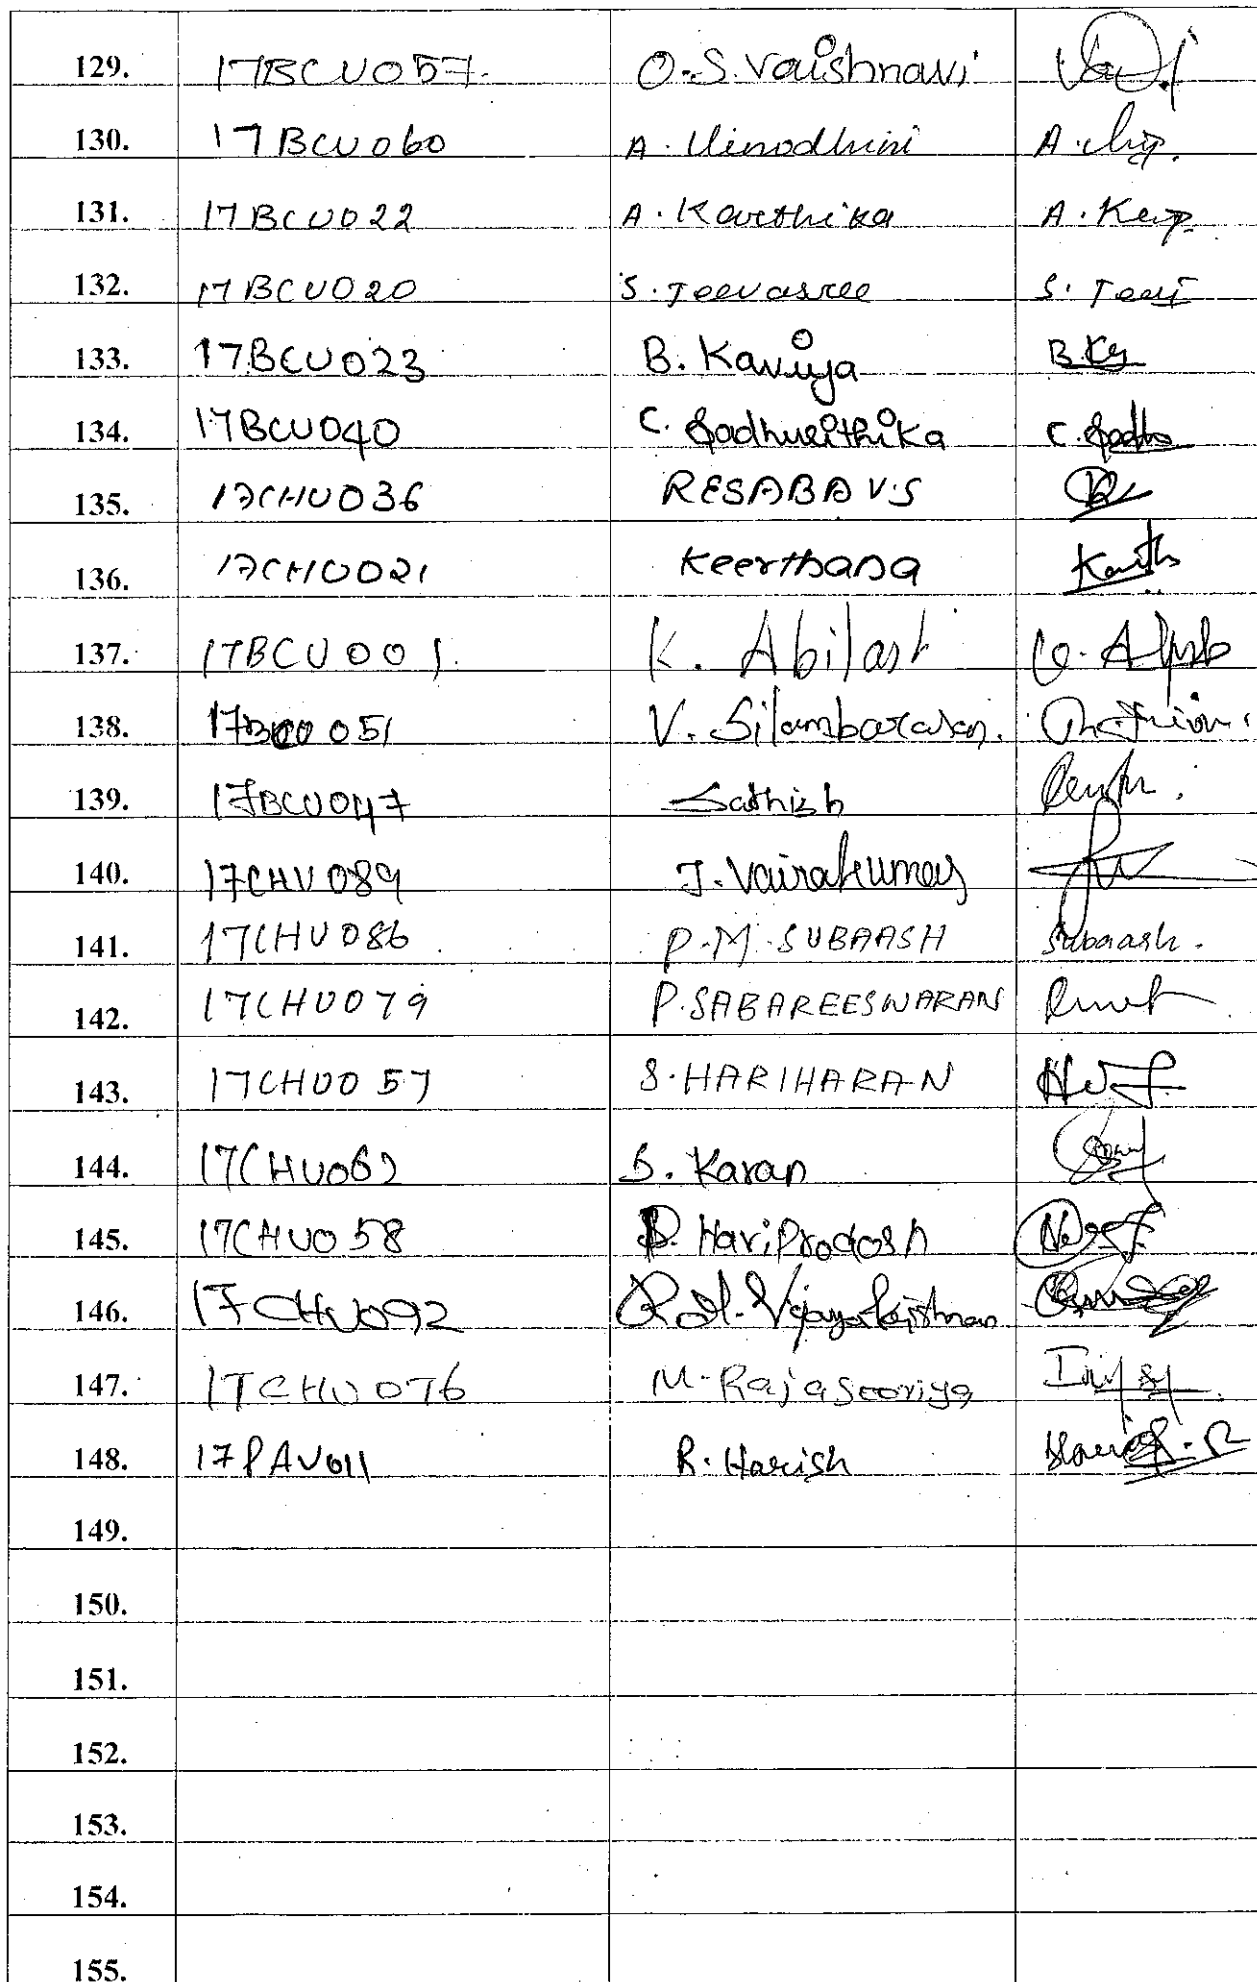 129. 17BCU057. O.S. Vaishnavi
130. 17BCU060 A. Vinodhini
131. 17BCU022 A. Karthika A. Kap.
132. 17BCU020 S. Jeevasree S. Jeevi
133. 17BCU023 B. Kaviya B. Ky
134. 17BCU040 C. Sadhurithika C. Sadhu
135. 17CHU036 RESABA V.S
136. 17CHU021 Keerthana Keerth
137. 17BCU001. K. Abilash
138. 17BCU051 V. Silambarasan.
139. 17BCU047 Sathish
140. 17CHU089 J. Vairakumar
141. 17CHU086 P.M. SUBAASH Subaash.
142. 17CHU079 P. SABAREESWARAN
143. 17CHU057 S. HARIHARAN
144. 17CHU062 S. Karan
145. 17CHU058 HariPradosh
146. 17CHU092 Vijayakrishnan
147. 17CHU076 M. Rajasooriya
148. 17PAU011 R. Harish Harish. R
149.
150.
151.
152.
153.
154.
155.